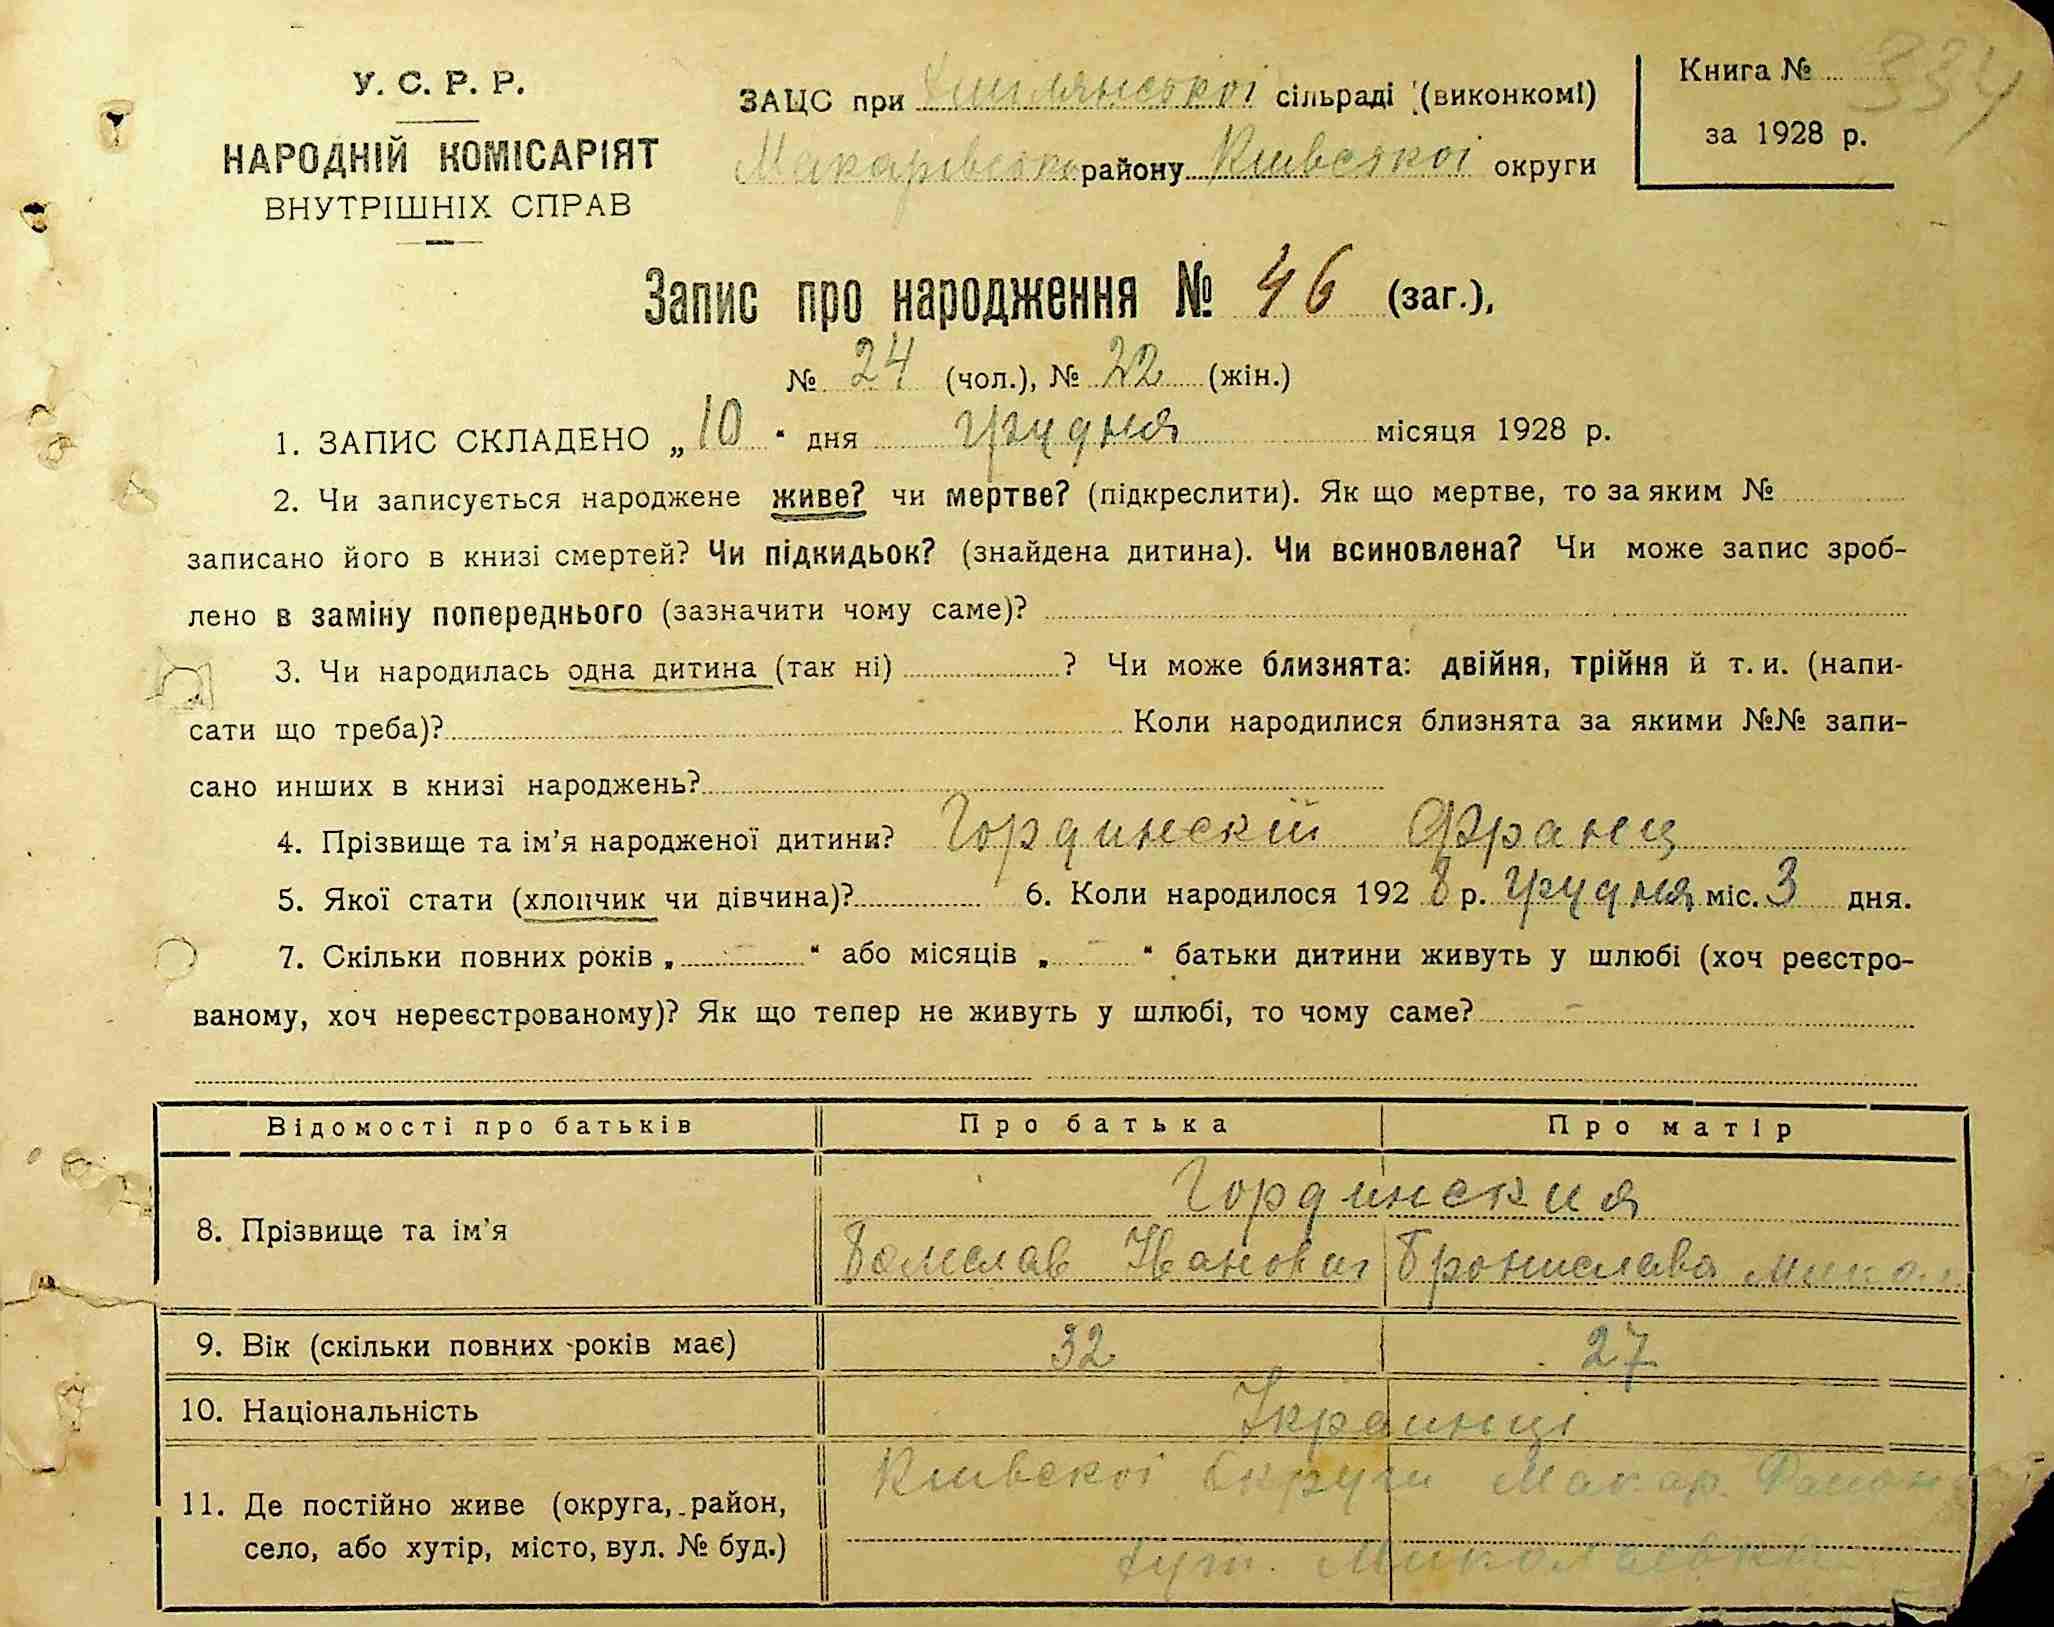 У. С. Р. Р.
НАРОДНІЙ КОМІСАРІЯТ
ВНУТРІШНІХ СПРАВ
ЗАЦС при сільраді (виконкомі)
Макарівсько району Київської округи
Книга № 334
за 1928 р.
Запис про народження № 46 (заг.),
№ 24 (чол.), № 22 (жін.)
1. ЗАПИС СКЛАДЕНО „10" дня грудня місяця 1928 р.
2. Чи записується народжене живе? чи мертве? (підкреслити). Як що мертве, то за яким №
записано його в книзі смертей? Чи підкидьок? (знайдена дитина). Чи всиновлена? Чи може запис зроб-
лено в заміну попереднього (зазначити чому саме)?
3. Чи народилась одна дитина (так ні) ? Чи може близнята: двійня, трійня й т. и. (напи-
сати що треба)? Коли народилися близнята за якими №№ запи-
сано инших в книзі народжень?
4. Прізвище та ім'я народженої дитини? Гординскій Франц
5. Якої стати (хлопчик чи дівчина)? 6. Коли народилося 1928 р. грудня міс. 3 дня.
7. Скільки повних років „ – " або місяців „ – " батьки дитини живуть у шлюбі (хоч реєстро-
ваному, хоч нереєстрованому)? Як що тепер не живуть у шлюбі, то чому саме? –
Відомості про батьків Про батька Про матір
8. Прізвище та ім'я Гординския
Болеслав Іванович Бронислава Микол
9. Вік (скільки повних років має) 32 27
10. Національність Украинці
11. Де постійно живе (округа, район, село, або хутір, місто, вул. № буд.) Київскої Округи Макар. Район
хут. Миколаевка